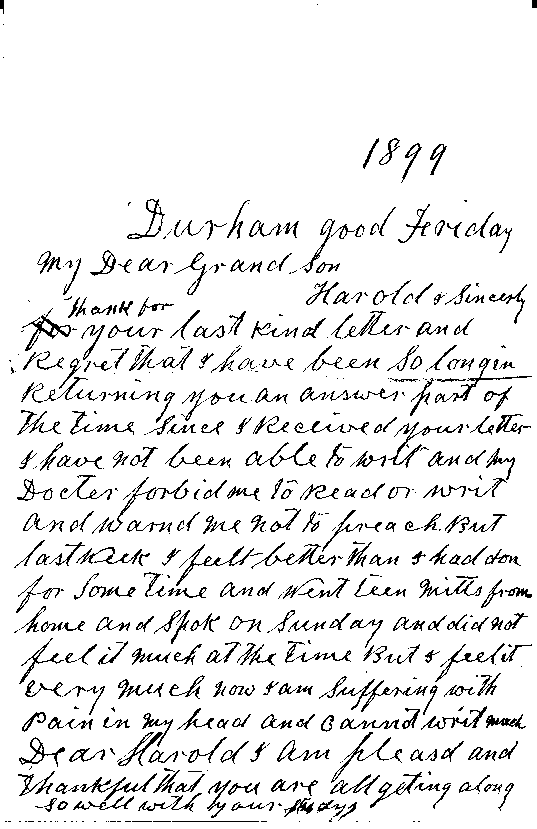 1899
Durham good Feriday
My Dear Grand Son
Harold I Sincerly
thank for
your last kind letter and
Regret that I have been So long in
Returning you an answer part of
the time Since I Received your letter
I have not been able to writ and my
Docter forbid me to Read or writ
and warnd me not to preach. But
last Week I feelt better than I had don
for Some time and Went teen Mills from
home and Spok on Sunday and did not
feel it much at the time But I feel it
very much now I am Suffering with
Pain in my head and Cannot writ much
Dear Harold I Am pleasd and
thankful that you are all geting along
So well with your studys